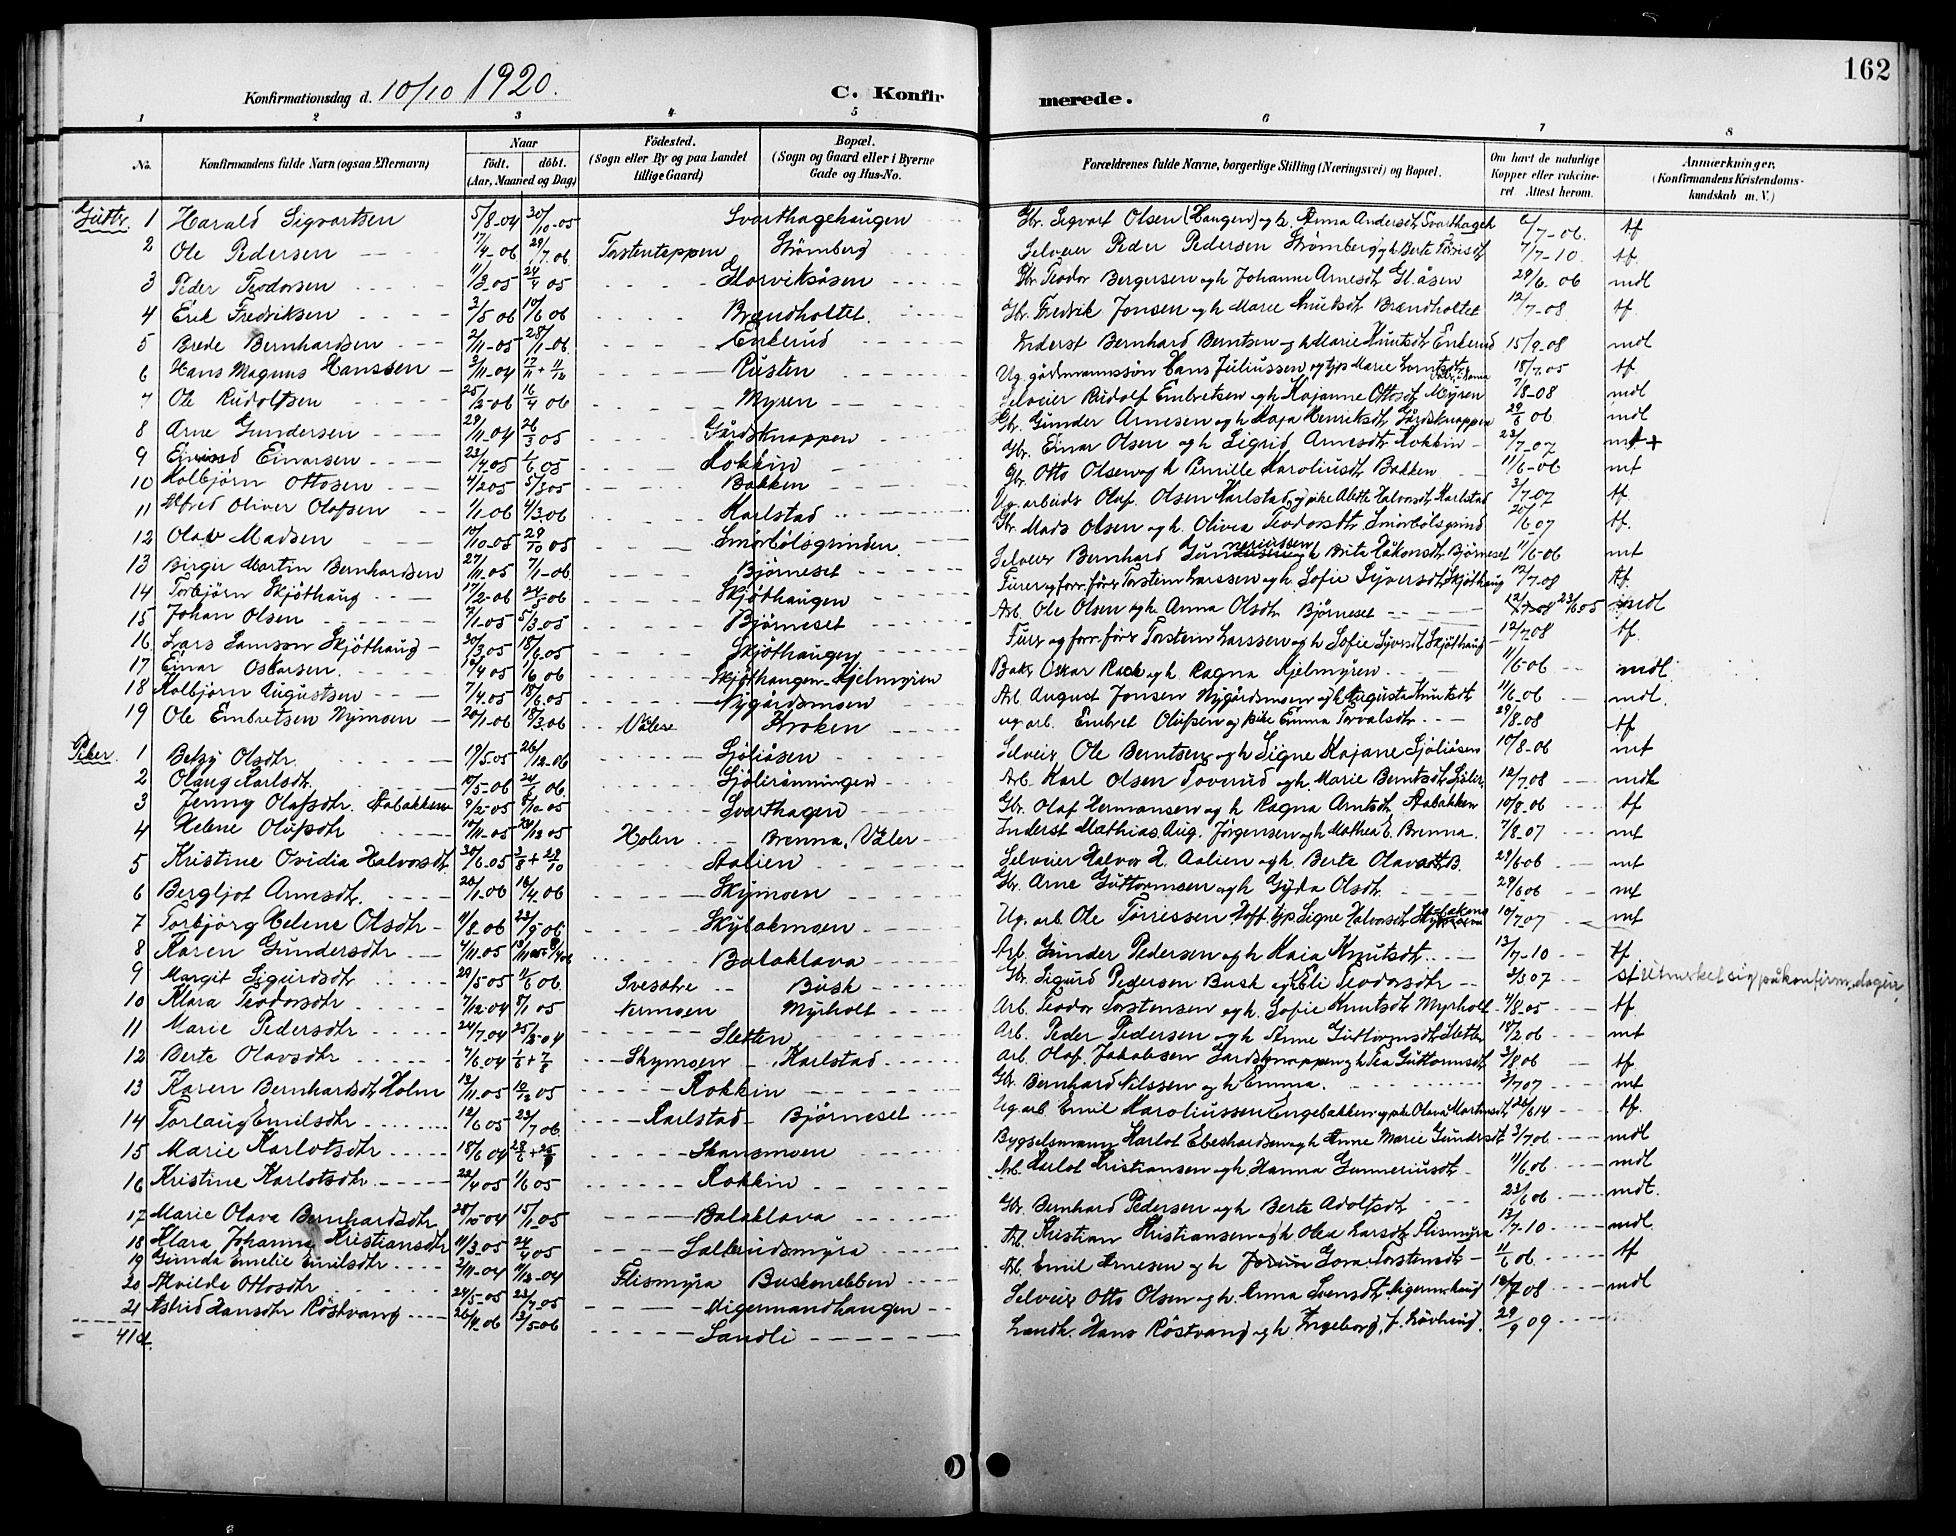 162
Konfirmationsdag d. 10/10 1920.
C. Konfirmerede.
1 2 3 4 5 6 7 8
No. Konfirmandens fulde Navn (ogsaa Efternavn) Naar født. døbt. (Aar, Maaned og Dag) Fødested. (Sogn eller By og paa Landet tillige Gaard) Bopæl. (Sogn og Gaard eller i Byerne Gade og Hus-No. Forældrenes fulde Navne, borgerlige Stilling (Næringsvei) og Bopæl. Om havt de naturlige Kopper eller vakcineret Attest herom. Anmærkninger. (Konfirmandens Kristendomskundskab m. V.)
Gutter. 1 Harald Sigvartsen 5/8-04 30/10-05 Svarthagehaugen Gbr. Sigvart Olsen (Haugen) og h. Anna Andersdtr Svarthageh /7-06. tf
2 Ole Pedersen 17/4-06 29/7 06 Torstenteppen Strømberg Selveier Peder Pedersen Strømberg og h Berte 7/7-10. tf.
3 Peder Teodorsen 11/3 05 24/4 05 Glorviksåsen Gbr. Teodor Bergersen og h Johanne Arnesdtr Gl.åsen 29/6 06 mdl
4 Erik Fredriksen 3/5 06 10/6 06 Brandholtet. Gbr. Fredrik Jonsen og h Marie Knutsdtr Brandholtet 12/7-08. tf.
5 Brede Bernhardsen 2/11-05 28/1-06 Enkerud Inderst Bernhard Berntsen og h Marie Knutsdtr Enkerud 15/9-08 mdl
6 Hans Magnus Hanssen 3/11-04 17/11 + 11/12 Rusten Ug. gårdmannssøn Hans Juliussen og tjp Marie 18/7.05 tf
7 Ole Rudolfsen 25/2-06 16/4 06 Myren Selveier Rudolf Embretsen og h Kajanne Ottosdtr Myren 7/8-08 mdl
8 Arne Gundersen 29/11-04 26/3 05 Gårdsknappen Gbr. Gunder Arnesen og h Kaja Henriksdtr Gårdsknappen 29/6 06 mdl
9 Einarsen 23/4-05 1/6 05 Rokkin Gbr. Einar Olsen og h Sigrid Arnesdtr Rokkin 23/7-07 mt+
10 Kolbjørn Ottosen 4/2 05 5/3 05 Bakken Gbr. Otto Olsen og h Pernille Karoliusdtr Bakken 11/6-06 mt
11 Alfred Oliver Olafsen 1/1-06 4/3.06 Karlstad Ug. arbeids Olaf Olsen Karlstad og pike Alette Halvorsdtr Karlstad 3/7-07 tf.
12 Olav Madsen 10/10-05 29/10 05 Smorbølsgrinden. Gbr. Mads Olsen og h. Olivia Teodorsdtr Smorbølsgrind 20/6 07 tf.
13 Birger Martin Bernhardsen 27/11-05 7/1-06 Bjørneset Selveier Bernhard og h Brite Håkonsdtr Bjørneset 11/6-06 mt
14 Torbjørn Skjøthaug 17/2-06 24/5-06 Skjøthaugen Furer og forr. fører Torstein Larssen og h. Sofie Syversdtr Skjøthaug 12/7.08 tf.
15 Johan Olsen 2/1-05 5/3 05 Bjørneset Arb. Ole Olsen og h Anna Olsdtr Bjørneset 23/6 05 mdl
16 Lars Lamson Skjøthaug 30/3.05 18/6.05 Skjøthaugen Furer og forr. fører Torstein Larssen og h Sofie Syversdtr Skjøthaug 12/7 08 tf.
17 Einar Oskarsen. 12/4 05 11/6 06 Skjøthaugen-Kjelmyren Bak. Oskar og h. Ragna Kjelmyren 11/6-06 mdl.
18 Kolbjørn Augustsen 7/4.05 18/6.05 Nygårdsmoen Arb. August Jonsen Nygårdsmoen og h Augusta Knutsdtr 11/6-06 mdl.
19 Ole Embretsen Nymoen 20/1-06 18/3.06 Våler Kroken ug. arb. Embret Olufsen og pike Emma Torvalsdtr 29/8-08 tf
Piker. 1 Betzy Olsdtr. 19/5-05 26/12-06 Sjøliåsen Selveier Ole Berntsen og h Signe Kajane Sjøliåsen 10/8-06 mt
2 Olaug Karlsdtr. 10/5-06 24/6 06. Sjølirønningen Arb. Karl Olsen Toverud og h. Marie Berntsdtr 12/7 08 mdl
3 Jenny Olafsdtr. Stabakken 9/2-05 8/10-05 Svarthagen Gbr. Olaf Hermansen og h Ragna Arntsdtr Stabakken 10/8.06 tf
4 Helene Olufsdtr 10/11-05 /12 05 Holen Brenna, Våler Inderst Mathias Aug. Jørgensen og h Mathea E. Brenna. 7/8.07 mt
5 Kristine Ovidia Halvorsdtr 30/6.05 + 29/10 Aalien Selveier Halvor H. Aalien og h Berte Olavsdtr. 29/6 06 mt
6 Bergljot Arnesdtr. 20/1-06 16/4.06 Skymoen Gbr. Arne Guttormsen og h Gyda Olsdtr. 29/6 06 mt
7 Torbjørg Helene Olsdtr 11/8-06 23/9 06 Skybakmoen Ug. arb. Ole Tørrissen Hoff. tjp Signe Halvorsdtr 10/7 07 mt
8 Karen Gundersdtr 4/11-05 Balaklava Arb. Gunder Pedersen og h Kaia Knutsdtr. 13/7-10 tf
9 Margit Sigurdsdtr 29/5 05 11/6 06. Svesetre Busk Gbr. Sigurd Pedersen Busk og Eli Teodorsdtr 3/6 07 st Utmerket sig på konfirm.dagen
10 Klara Teodorsdtr 7/12.04 8/1 05 Nermoen Myrholt Arb. Teodor Torstensen og h. Sofie Knutsdtr Myrholt 4/8-05 tf
11 Marie Pedersdtr 24/7 04 25/-04 Sletten Arb. Peder Pedersen og h Anne Guttormsdtr Sletten 18/2 06 mt
12 Berte Olavsdtr 7/6 04 + 7/8 Skymoen Karlstad arb. Olaf Jakobsen Gardsknappen og h Tea Guttormsdtr 3/8 06 tf
13 Karen Bernhardsdtr Holm 12/11-05 10/12 05 Rokkin Gbr. Bernhard Nilssen og h Emma. 3/7 07 mt
14 Torlaug Emilsdtr. 12/6 05 23/7 06. Karlstad Bjørneset Ug. arb. Emil Karoliussen Engebakken og pike Olava Martinsdtr 26/6 14 tf.
15 Marie Karlotsdtr 18/6 04 28/6 + 25/9 Skansmoen Bygselsmann Karlot Eberhardsen og h Anne Marie Gundersdtr 3/7 06 mdl
16 Kristine Karlotsdtr. 22/4 05 11/6 05 Rokkin Arb. Karlot Kristiansen og h. Hanna Gunneriusdtr 11/6 06 mdl
17 Marie Olava Bernhardsdtr. 28/10-04 15/1.05 Balaklava Gbr. Bernhard Pedersen og h Berte Adolfsdtr 23/6 06 mdl.
18 Klara Johanna Kristiansdtr 11/3.05 24/4 05 Salterudsmyra Arb. Kristian Kristiansen og h Olea Larsdtr Flismyra 13/7-10 mdl
19 Gunda Emelie Emilsdtr 2/11-04 11/12-04 Flismyra Buskenebben Arb. Emil Arnesen og h Gora Torstensdtr 11/6 06 tf
20 Alvilde Ottosdtr 24/5-05 23/7 05 Migermandhaugen Selveier Otto Olsen og h. Anna Svensdtr. 12/7 08 mdl
21 Astrid Hansdtr Røstvang 26/4 06 13/5-06 Sandli Landh. Hans Røstvang og h. Ingeborg, f. Løvlund. 29/9 09
41